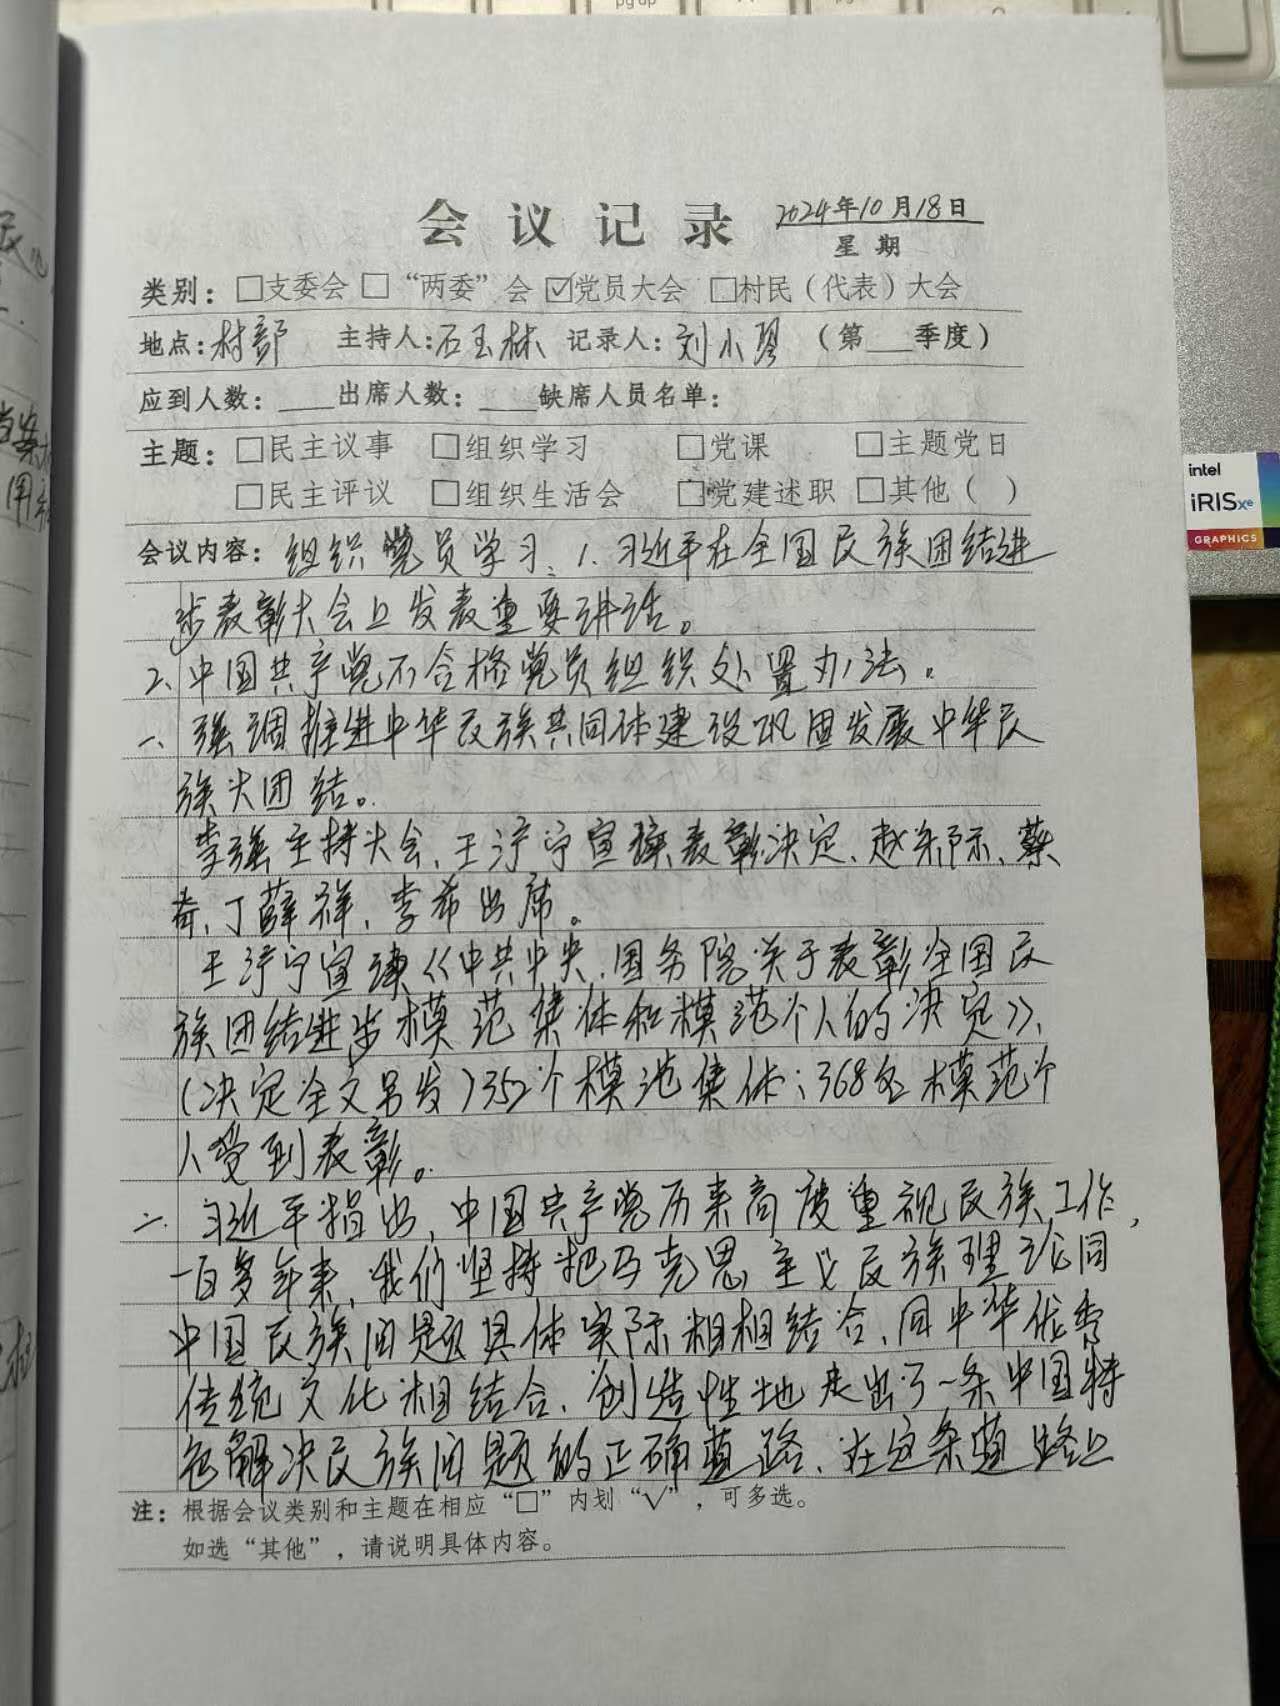 会议记录 2024年10月18日
星期
类别：☐支委会 ☐“两委”会 ☑党员大会 ☐村民（代表）大会
地点：村部 主持人：石玉林 记录人：刘小琴 （第___季度）
应到人数：____出席人数：____缺席人员名单：
主题：☐民主议事 ☐组织学习 ☐党课 ☐主题党日
☐民主评议 ☐组织生活会 ☐党建述职 ☐其他（ ）
会议内容：组织党员学习、1.习近平在全国民族团结进
步表彰大会上发表重要讲话。
2、中国共产党不合格党员组织处置办法。
一、强调推进中华民族共同体建设巩固发展中华民
族大团结。
李强主持大会、王沪宁宣读表彰决定、赵乐际、蔡
奇、丁薛祥、李希出席。
王沪宁宣读《中共中央、国务院关于表彰全国民
族团结进步模范集体和模范个人的决定》、
（决定全文另发）352个模范集体；368名模范个
人受到表彰。
二、习近平指出，中国共产党历来高度重视民族工作，
一百多年来、我们坚持把马克思主义民族理论同
中国民族问题具体实际相相结合、同中华优秀
传统文化相结合、创造性地走出了一条中国特
色解决民族问题的正确道路、在这条道路上
注：根据会议类别和主题在相应“☐”内划“√”，可多选。
如选“其他”，请说明具体内容。
intel
iRIS Xe
GRAPHICS